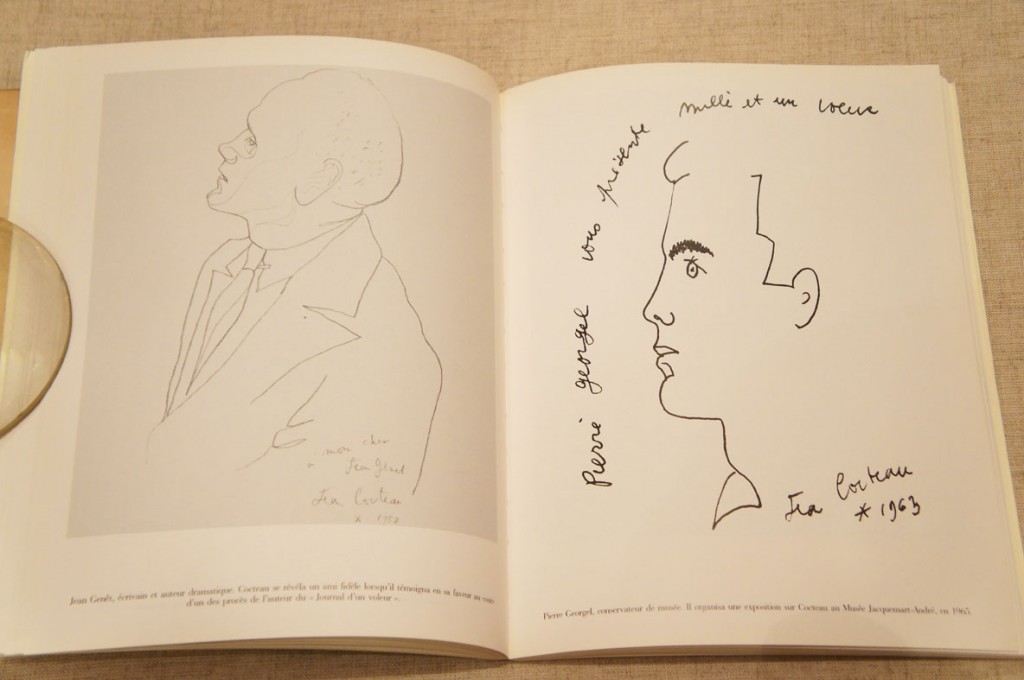 mon cher
Jean Genet
Jean Cocteau
* 1950
Jean Genêt, écrivain et auteur dramatique. Cocteau se révéla un ami fidèle lorsqu'il témoigna en sa faveur au cours
d'un des procès de l'auteur du « Journal d'un voleur ».
Pierre georgel vous présente
mille et un voeux
Jean Cocteau
* 1963
Pierre Georgel, conservateur de musée. Il organisa une exposition sur Cocteau au Musée Jacquemart-André, en 1965.